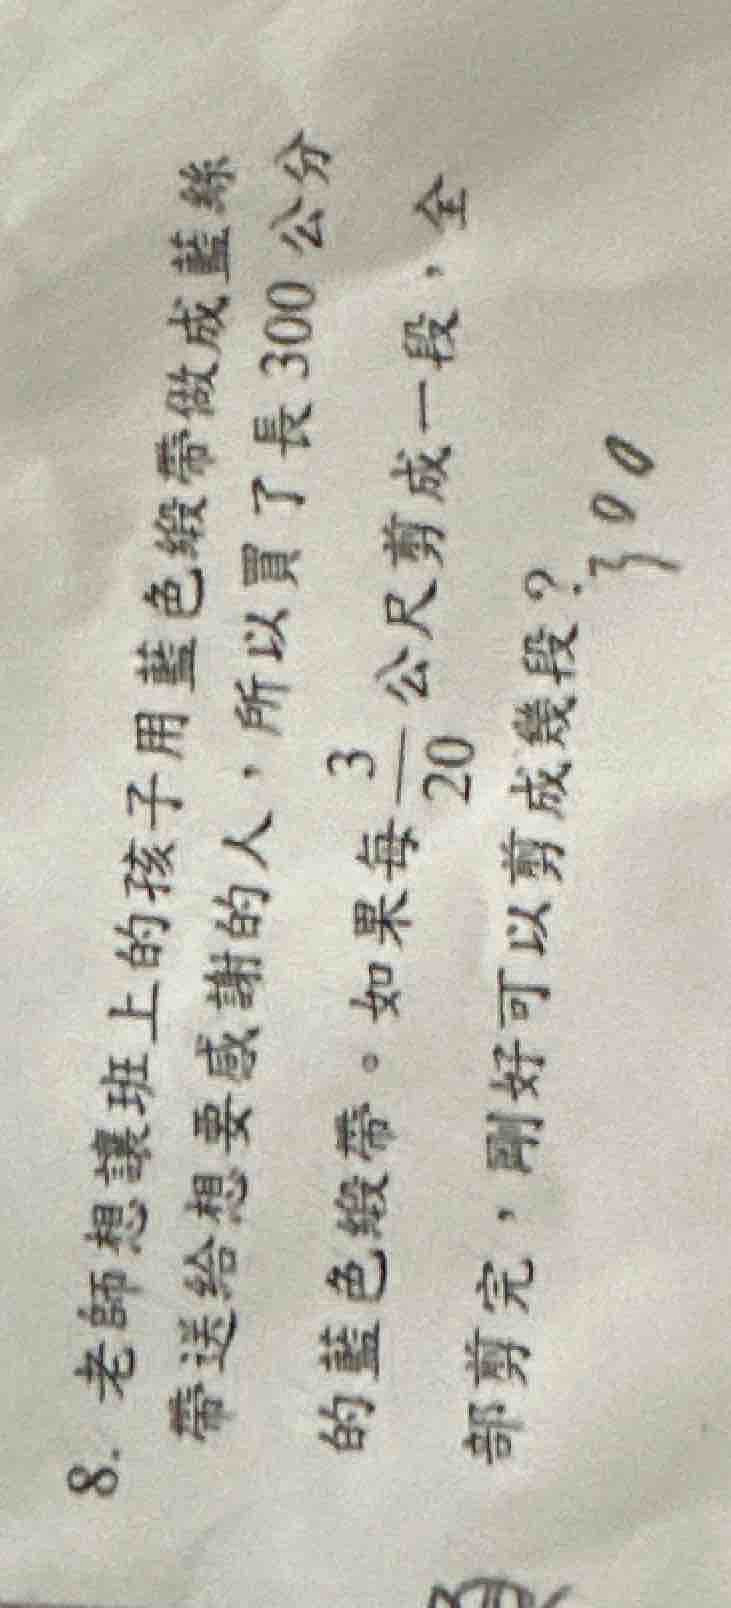 8. 老師想讓班上的孩子用藍色緞帶做成藍絲
帶送給想要感謝的人，所以買了長300公分
的藍色緞帶。如果每3/20公尺剪成一段，全
部剪完，剛好可以剪成幾段？
300